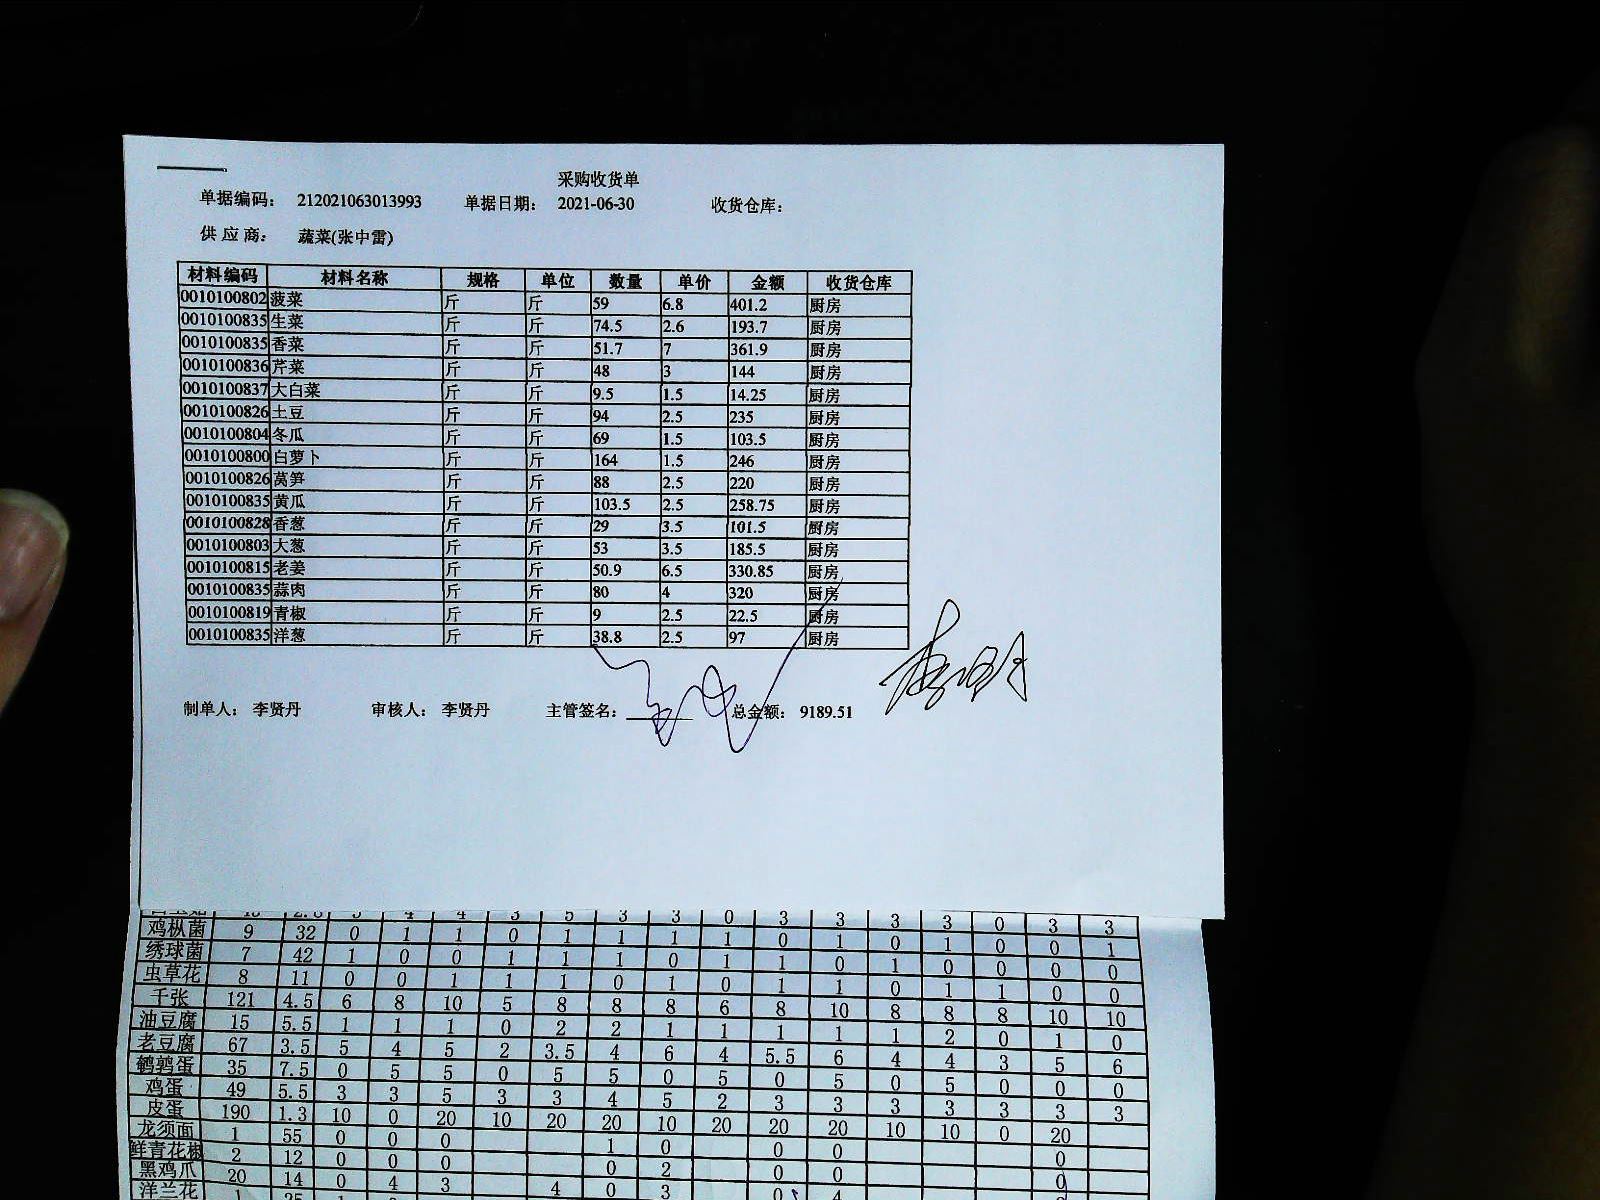 采购收货单
单据编码： 212021063013993 单据日期： 2021-06-30 收货仓库：
供 应 商： 蔬菜(张中雷)
材料编码 材料名称 规格 单位 数量 单价 金额 收货仓库
0010100802 菠菜 斤 斤 59 6.8 401.2 厨房
0010100835 生菜 斤 斤 74.5 2.6 193.7 厨房
0010100835 香菜 斤 斤 51.7 7 361.9 厨房
0010100836 芹菜 斤 斤 48 3 144 厨房
0010100837 大白菜 斤 斤 9.5 1.5 14.25 厨房
0010100826 土豆 斤 斤 94 2.5 235 厨房
0010100804 冬瓜 斤 斤 69 1.5 103.5 厨房
0010100800 白萝卜 斤 斤 164 1.5 246 厨房
0010100826 莴笋 斤 斤 88 2.5 220 厨房
0010100835 黄瓜 斤 斤 103.5 2.5 258.75 厨房
0010100828 香葱 斤 斤 29 3.5 101.5 厨房
0010100803 大葱 斤 斤 53 3.5 185.5 厨房
0010100815 老姜 斤 斤 50.9 6.5 330.85 厨房
0010100835 蒜肉 斤 斤 80 4 320 厨房
0010100819 青椒 斤 斤 9 2.5 22.5 厨房
0010100835 洋葱 斤 斤 38.8 2.5 97 厨房
制单人： 李贤丹 审核人： 李贤丹 主管签名： 总金额： 9189.51
鸡枞菌 9 32 0 1 1 0 1 1 1 1 0 1 0 1 0 0 1
绣球菌 7 42 1 0 0 1 1 1 0 1 1 0 1 0 0 0 0
虫草花 8 11 0 0 1 1 1 0 1 0 1 1 0 1 1 0 0
千张 121 4.5 6 8 10 5 8 8 8 6 8 10 8 8 8 10 10
油豆腐 15 5.5 1 1 1 0 2 2 1 1 1 1 1 2 0 1 0
老豆腐 67 3.5 5 4 5 2 3.5 4 6 4 5.5 6 4 4 3 5 6
鹌鹑蛋 35 7.5 0 5 5 0 5 5 0 5 0 5 0 5 0 0 0
鸡蛋 49 5.5 3 3 5 3 3 4 5 2 3 3 3 3 3 3 3
皮蛋 190 1.3 10 0 20 10 20 20 10 20 20 20 10 10 0 20
龙须面 1 55 0 0 0 1 0 0 0 0
鲜青花椒 2 12 0 0 0 0 2 0 0
黑鸡爪 20 14 0 4 3 4 0 3 0 4
洋兰花